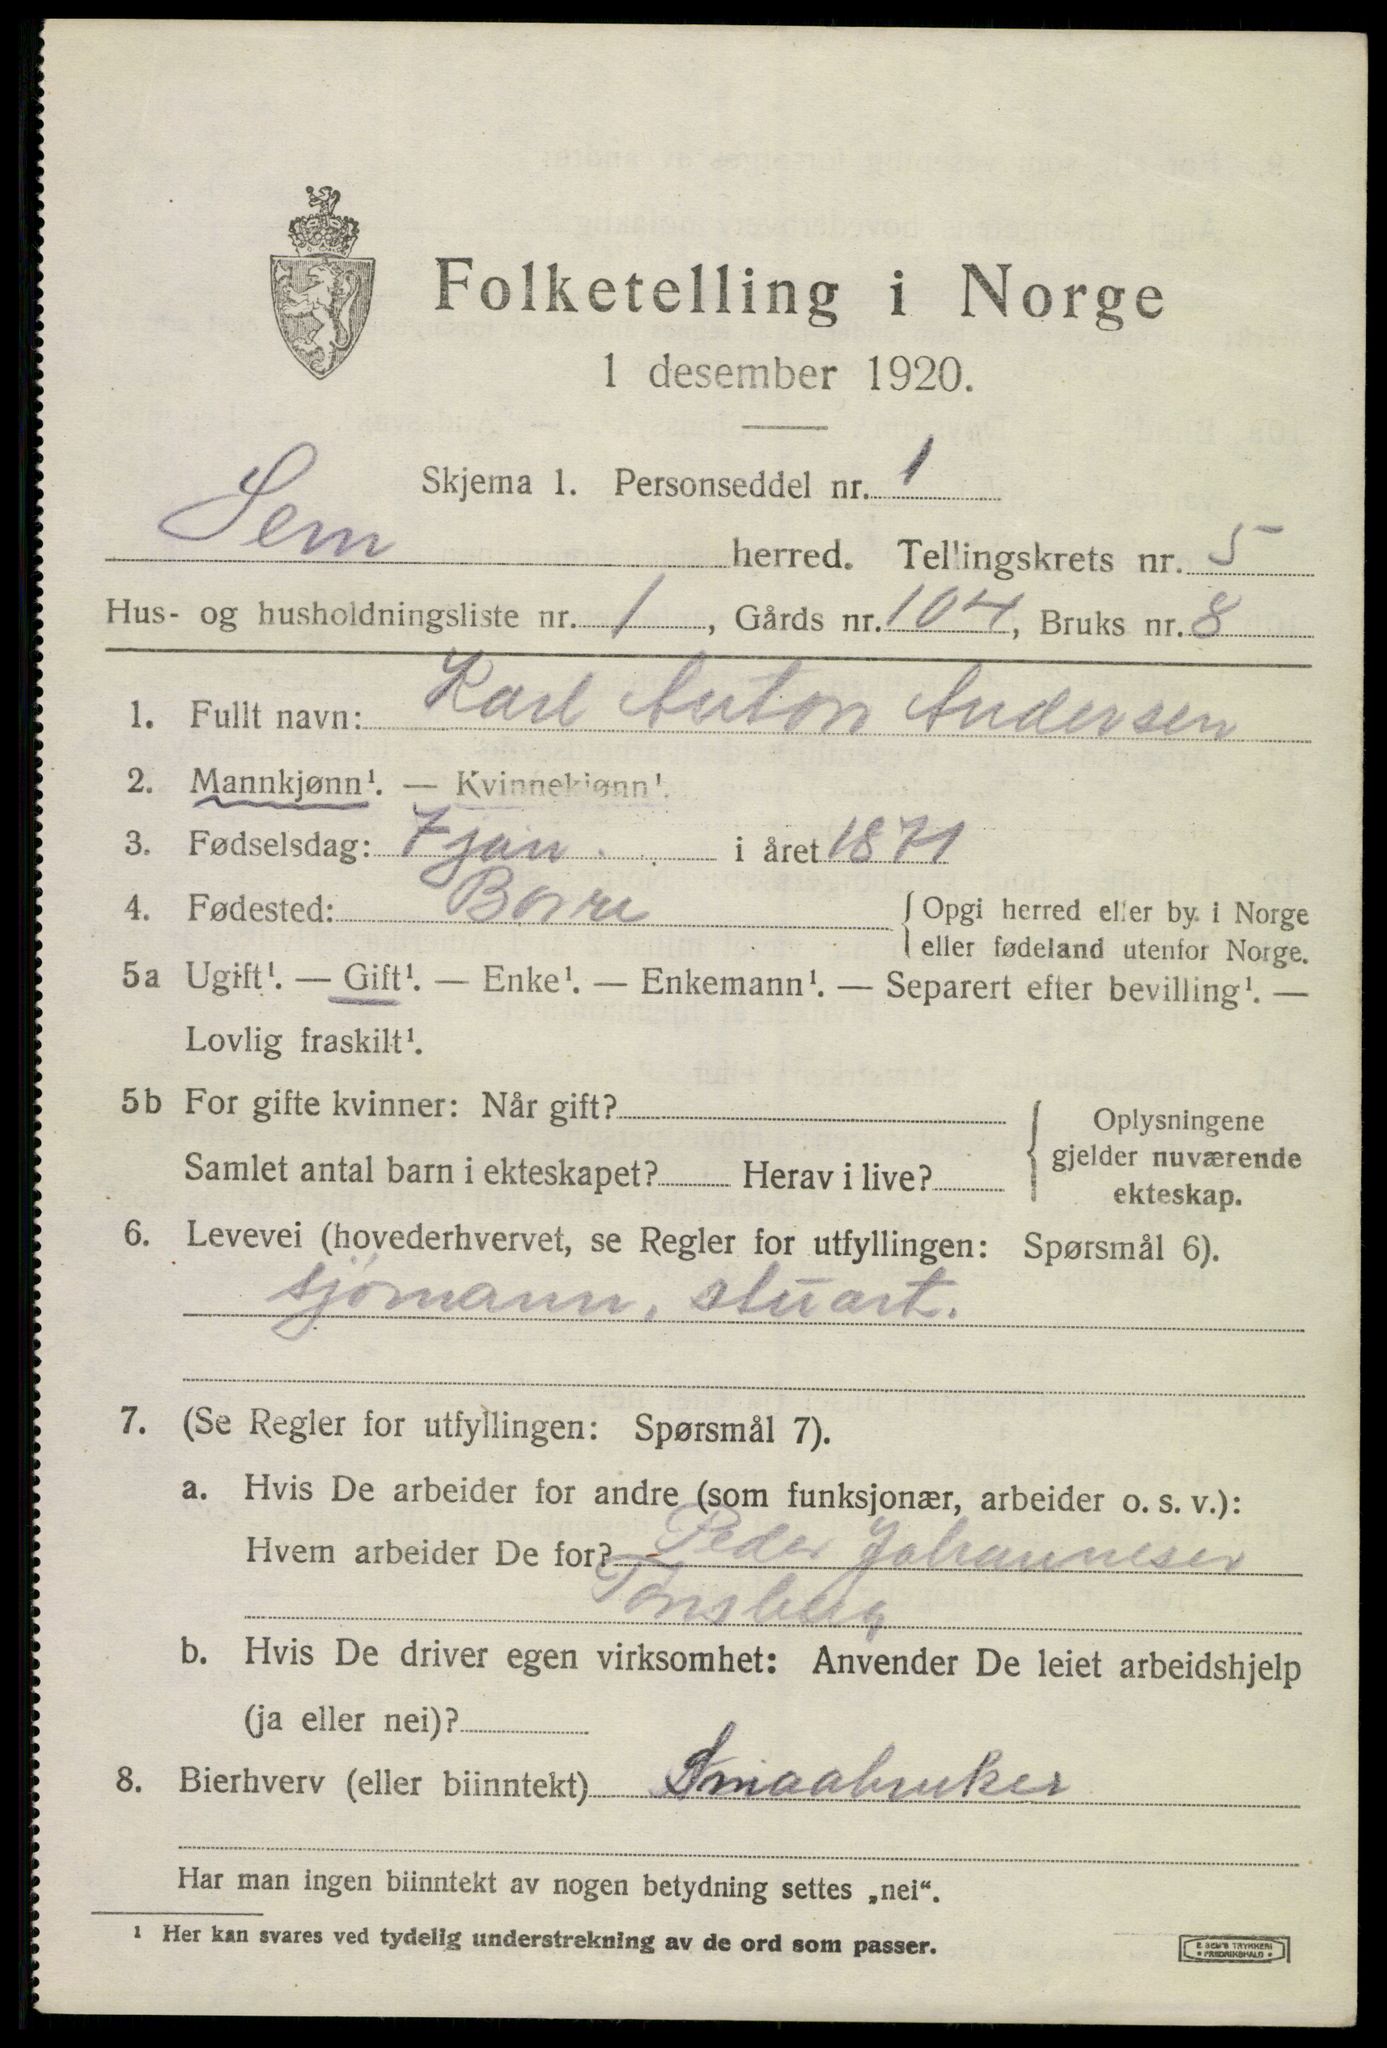 Folketelling i Norge
1 desember 1920.
Skjema 1. Personseddel nr. 1
Sem herred. Tellingskrets nr. 5
Hus- og husholdningsliste nr. 1, Gårds nr. 104, Bruks nr. 8
1. Fullt navn: Karl Anton Andersen
2. Mannkjønn¹. — Kvinnekjønn¹.
3. Fødselsdag: 7 jan. i året 1871
4. Fødested: Borre { Opgi herred eller by i Norge
eller fødeland utenfor Norge.
5a Ugift¹. — Gift¹. — Enke¹. — Enkemann¹. — Separert efter bevilling¹. —
Lovlig fraskilt¹.
5b For gifte kvinner: Når gift? { Oplysningene
gjelder nuværende
Samlet antal barn i ekteskapet? Herav i live?
ekteskap.
6. Levevei (hovederhvervet, se Regler for utfyllingen: Spørsmål 6).
sjømann, stuart.
7. (Se Regler for utfyllingen: Spørsmål 7).
a. Hvis De arbeider for andre (som funksjonær, arbeider o. s. v.):
Hvem arbeider De for? Peder Johannesen
Tønsberg
b. Hvis De driver egen virksomhet: Anvender De leiet arbeidshjelp
(ja eller nei)?
8. Bierhverv (eller biinntekt) Smaabruker
Har man ingen biinntekt av nogen betydning settes „nei“.
¹ Her kan svares ved tydelig understrekning av de ord som passer.
E. SEM'S TRYKKERI
• FREDRIKSHALD •